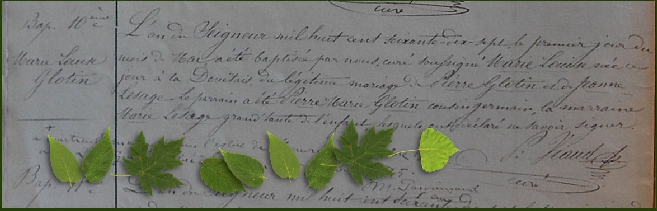 curé
Bap. 10ème
Marie Louise
Glotin
L'an du Seigneur mil huit cent soixante-dix-sept le premier jour du
mois de Mai a été baptisée par nous, curé soussigné Marie Louise née ce
jour à la Denitais du légitime mariage de Pierre Glotin et de Jeanne
Lesage le parrain a été Pierre Marie Glotin cousin germain la marraine
Marie Lesage grand'tante de l'enfant lesquels ont déclaré ne savoir signer.
curé
Bap. 11
L'an du Seigneur mil huit cent soixante